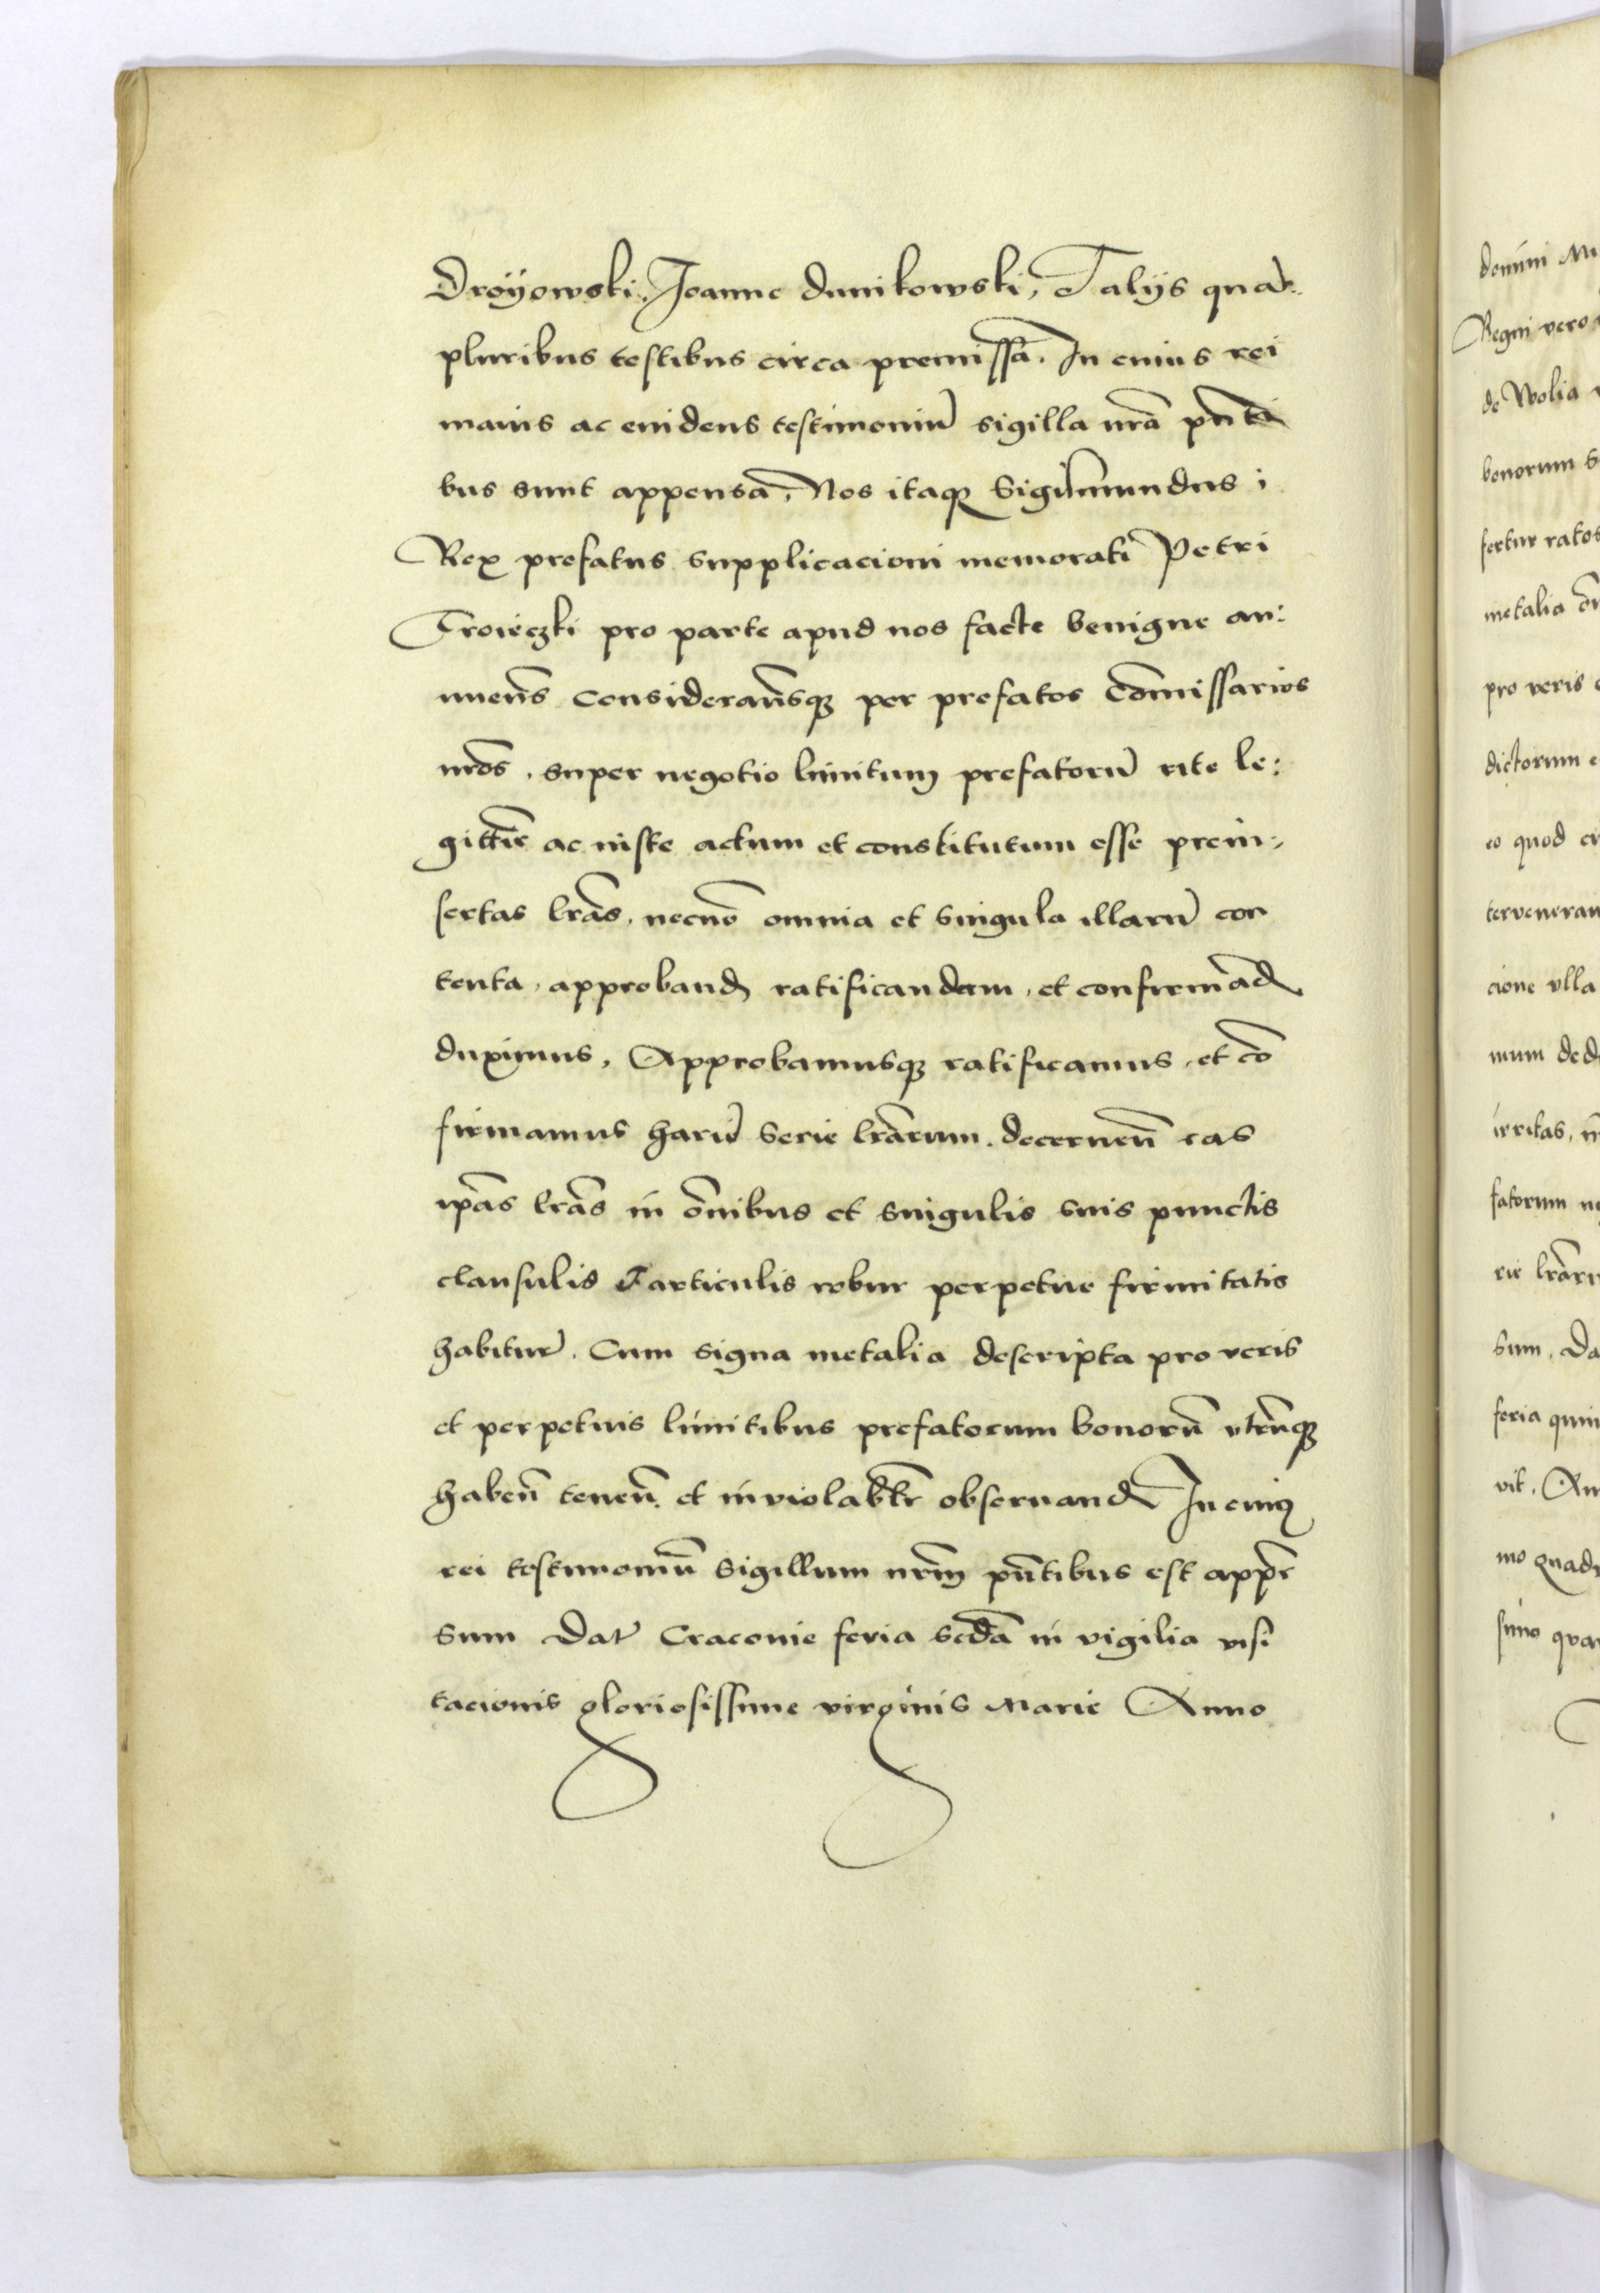 Droÿowski, Joanne dunikowski, Et alijs quã:
pluribus testibus circa premissa. In cuius rei
maius ac euidens testimoniũ sigilla nrã pñti
bus sunt appensa, Nos itaqȝ Sigismundus
Rex prefatus supplicacioni memorati Petri
Troieczki pro parte apud nos facte benigne an:
nueñs considerañsqȝ per prefatos Com̃issarios
nrõs, super negotio limitum prefatorũ rite le:
gittiẽ ac iuste actum et constitutum esse prein:
sertas lrãs, necnõ omnia et singula illarũ con
tenta, approband ratificandam, et confirmãd
duximus, Approbamusqȝ ratificamus, et cõ
firmamus harũ serie lrãrum, decerneñ eas
ipãs lrãs in õnibus et singulis suis punctis
clausulis et articulis robur perpetue firmitatis
habiturũ. Cum signa metalia descripta pro veris
et perpetuis limitibus prefatorum bonorũ vtrũqȝ
habeñ teneñ et inviolabĩlr obseruand In cuiꝰ
rei testimoniũ Sigillum nrm̃ pñtibus est appẽ
sum Dat Craconie feria scdã in vigilia visi
tacionis gloriosissime virginis Marie Anno
domini
Regni vero
de Wolia
bonorum
fertur ratos
metalia
pro veris
dictorum
eo quod
cione vlla
mum
irritas,
fatorum
rie
sum, Da
feria
vit. An
mo quadr
simo